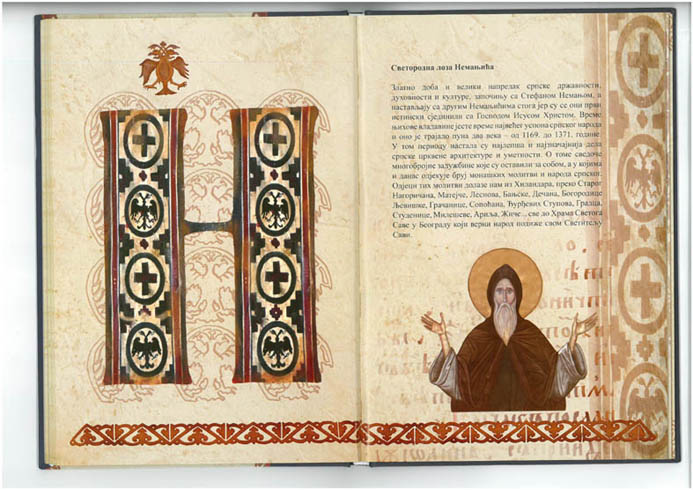 Н
Светородна лоза Немањића
Златно доба и велики напредак српске државности,
духовности и културе, започињу са Стефаном Немањом, а
настављају са другим Немањићима стога јер су се они први
истински сјединили са Господом Исусом Христом. Време
њихове владавине јесте време највећег успона српског народа
и оно је трајало пуна два века – од 1169. до 1371. године.
У том периоду настала су најлепша и најзначајнија дела
српске црквене архитектуре и уметности. О томе сведоче
многобројне задужбине које су оставили за собом, а у којима
и данас одјекује брују монашких молитви и народа српског.
Одјеци тих молитви долазе нам из Хиландара, преко Старог
Нагоричана, Матејче, Леснова, Бањске, Дечана, Богородице
Љевишке, Грачанице, Сопоћана, Ђурђевих Ступова, Градца,
Студенице, Милешеве, Ариља, Жиче... све до Храма Светога
Саве у Београду који верни народ подиже свом Светитељу
Сави.